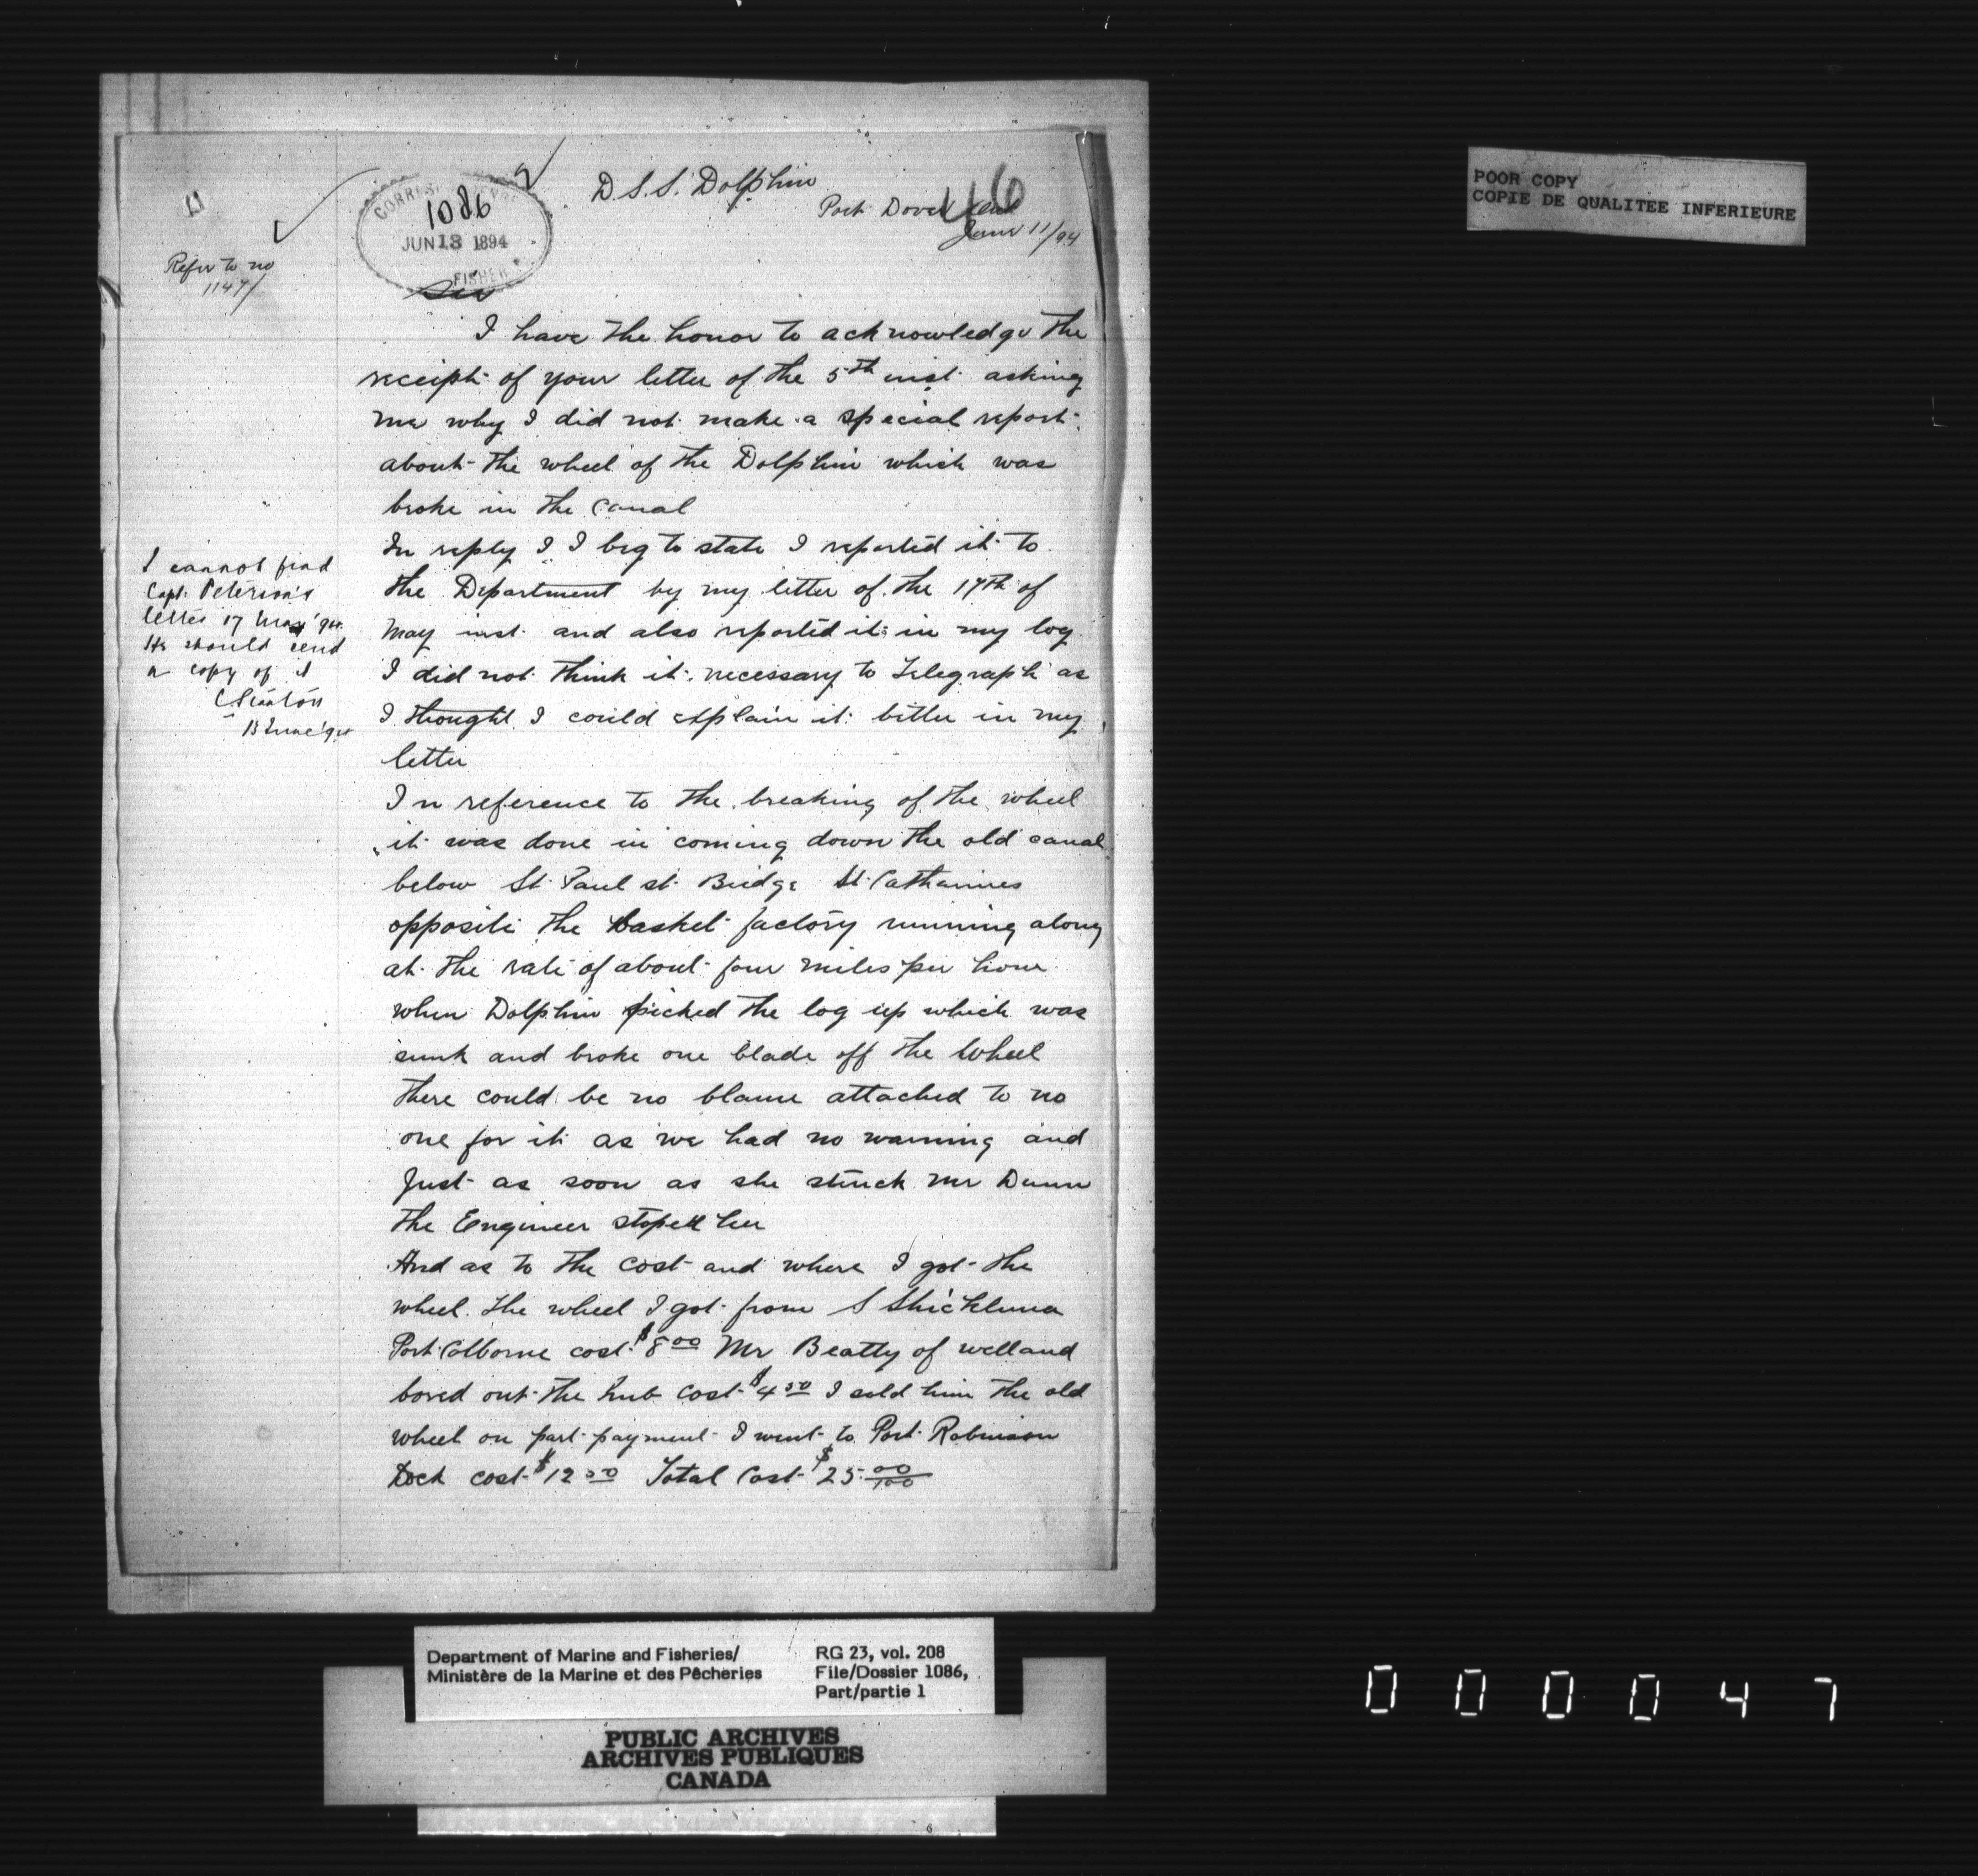 D.S.S. Dolphin
46
Port Dover
June 11/94
CORRESPONDENCE
1086
JUN 13 1894
FISHER
Refer to no
1147
Sir
I have the honor to acknowledge the
receipt of your letter of the 5th inst. asking
me why I did not make a special report
about the wheel of the Dolphin which was
broke in the Canal
In reply I I beg to state I reported it to
the Department by my letter of the 17th of
May inst. and also reported it in my log
I did not think it necessary to Telegraph as
I thought I could explain it better in my
letter
I cannot find
Capt. Peterson's
letter 17 May '94.
He should send
a copy of it
13 June '94
In reference to the breaking of the wheel
it was done in coming down the old canal
below St. Paul st. Bridge St. Catharines
opposite the basket factory running along
at the rate of about four miles per hour
when Dolphin picked the log up which was
sunk and broke one blade off the Wheel
there could be no blame attached to no
one for it as we had no warning and
Just as soon as she struck Mr Dunn
the Engineer stoped her
And as to the Cost and where I got the
wheel. the wheel I got from S Shickluna
Port Colborne cost $8 00 Mr Beatty of welland
bored out the hub cost $4 50 I sold him the old
wheel on part payment I went to Port Robinson
Dock cost $12 50 Total Cost $25 00/100
POOR COPY
COPIE DE QUALITEE INFERIEURE
Department of Marine and Fisheries/
Ministère de la Marine et des Pêcheries
RG 23, vol. 208
File/Dossier 1086,
Part/partie 1
PUBLIC ARCHIVES
ARCHIVES PUBLIQUES
CANADA
000047